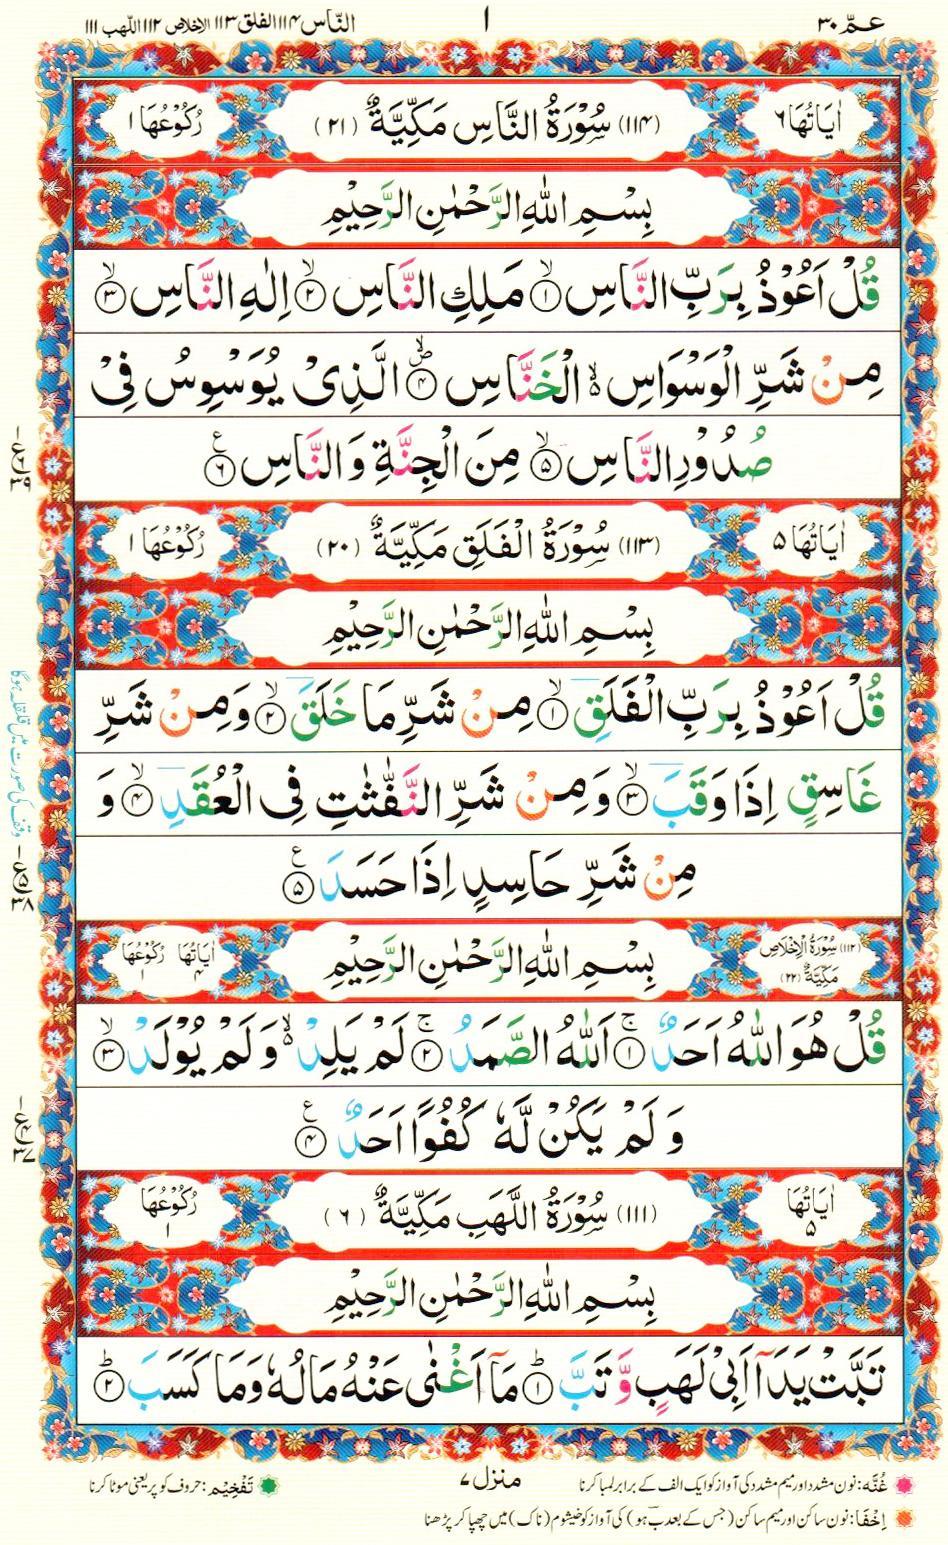 عـمّ ٣٠
١
النّاس ١١٤ الفلق ١١٣ الإخلاص ١١٢ اللّهب ١١١
اٰيَاتُهَا ٦
(١١٤) سُوْرَةُ النَّاسِ مَكِّيَّةٌ (٢١)
رُكُوْعُهَا ١
بِسْمِ اللّٰهِ الرَّحْمٰنِ الرَّحِيْمِ
قُلْ اَعُوْذُ بِرَبِّ النَّاسِ ۙ﴿۱﴾ مَلِكِ النَّاسِ ۙ﴿۲﴾ اِلٰهِ النَّاسِ ۙ﴿۳﴾
مِنْ شَرِّ الْوَسْوَاسِ ۬ۙ الْخَنَّاسِ ۪ۙ﴿۴﴾ الَّذِیْ یُوَسْوِسُ فِیْ
صُدُوْرِ النَّاسِ ۙ﴿۵﴾ مِنَ الْجِنَّةِ وَ النَّاسِ ﴿۶﴾ ع
اٰيَاتُهَا ٥
(١١٣) سُوْرَةُ الْفَلَقِ مَكِّيَّةٌ (٢٠)
رُكُوْعُهَا ١
بِسْمِ اللّٰهِ الرَّحْمٰنِ الرَّحِيْمِ
قُلْ اَعُوْذُ بِرَبِّ الْفَلَقِ ۙ﴿۱﴾ مِنْ شَرِّ مَا خَلَقَ ۙ﴿۲﴾ وَ مِنْ شَرِّ
غَاسِقٍ اِذَا وَقَبَ ۙ﴿۳﴾ وَ مِنْ شَرِّ النَّفّٰثٰتِ فِی الْعُقَدِ ۙ﴿۴﴾ وَ
مِنْ شَرِّ حَاسِدٍ اِذَا حَسَدَ ﴿۵﴾ ع
(١١٢) سُوْرَةُ الْاِخْلَاصِ مَكِّيَّةٌ (٢٢)
بِسْمِ اللّٰهِ الرَّحْمٰنِ الرَّحِيْمِ
اٰيَاتُهَا ٤ رُكُوْعُهَا ١
قُلْ هُوَ اللّٰهُ اَحَدٌ ۚ﴿۱﴾ اَللّٰهُ الصَّمَدُ ۚ﴿۲﴾ لَمْ یَلِدْ ۬ۙ وَ لَمْ یُوْلَدْ ۙ﴿۳﴾
وَ لَمْ یَكُنْ لَّهٗ كُفُوًا اَحَدٌ ﴿۴﴾ ع
اٰيَاتُهَا ٥
(١١١) سُوْرَةُ اللَّهَبِ مَكِّيَّةٌ (٦)
رُكُوْعُهَا ١
بِسْمِ اللّٰهِ الرَّحْمٰنِ الرَّحِيْمِ
تَبَّتْ یَدَاۤ اَبِیْ لَهَبٍ وَّ تَبَّ ؕ﴿۱﴾ مَاۤ اَغْنٰی عَنْهُ مَالُهٗ وَ مَا كَسَبَ ؕ﴿۲﴾
غُنَّه: نون مشدد اور میم مشدد کی آواز کو ایک الف کے برابر لمبا کرنا
منزل ٧
تَفْخِیْم: حروف کو پُر یعنی موٹا کرنا
اِخْفَا: نون ساکن اور میم ساکن (جس کے بعد ب ہو) کی آواز کو خیشوم (ناک) میں چھپا کر پڑھنا
وقف کی صورت میں قلقلہ ہو گا